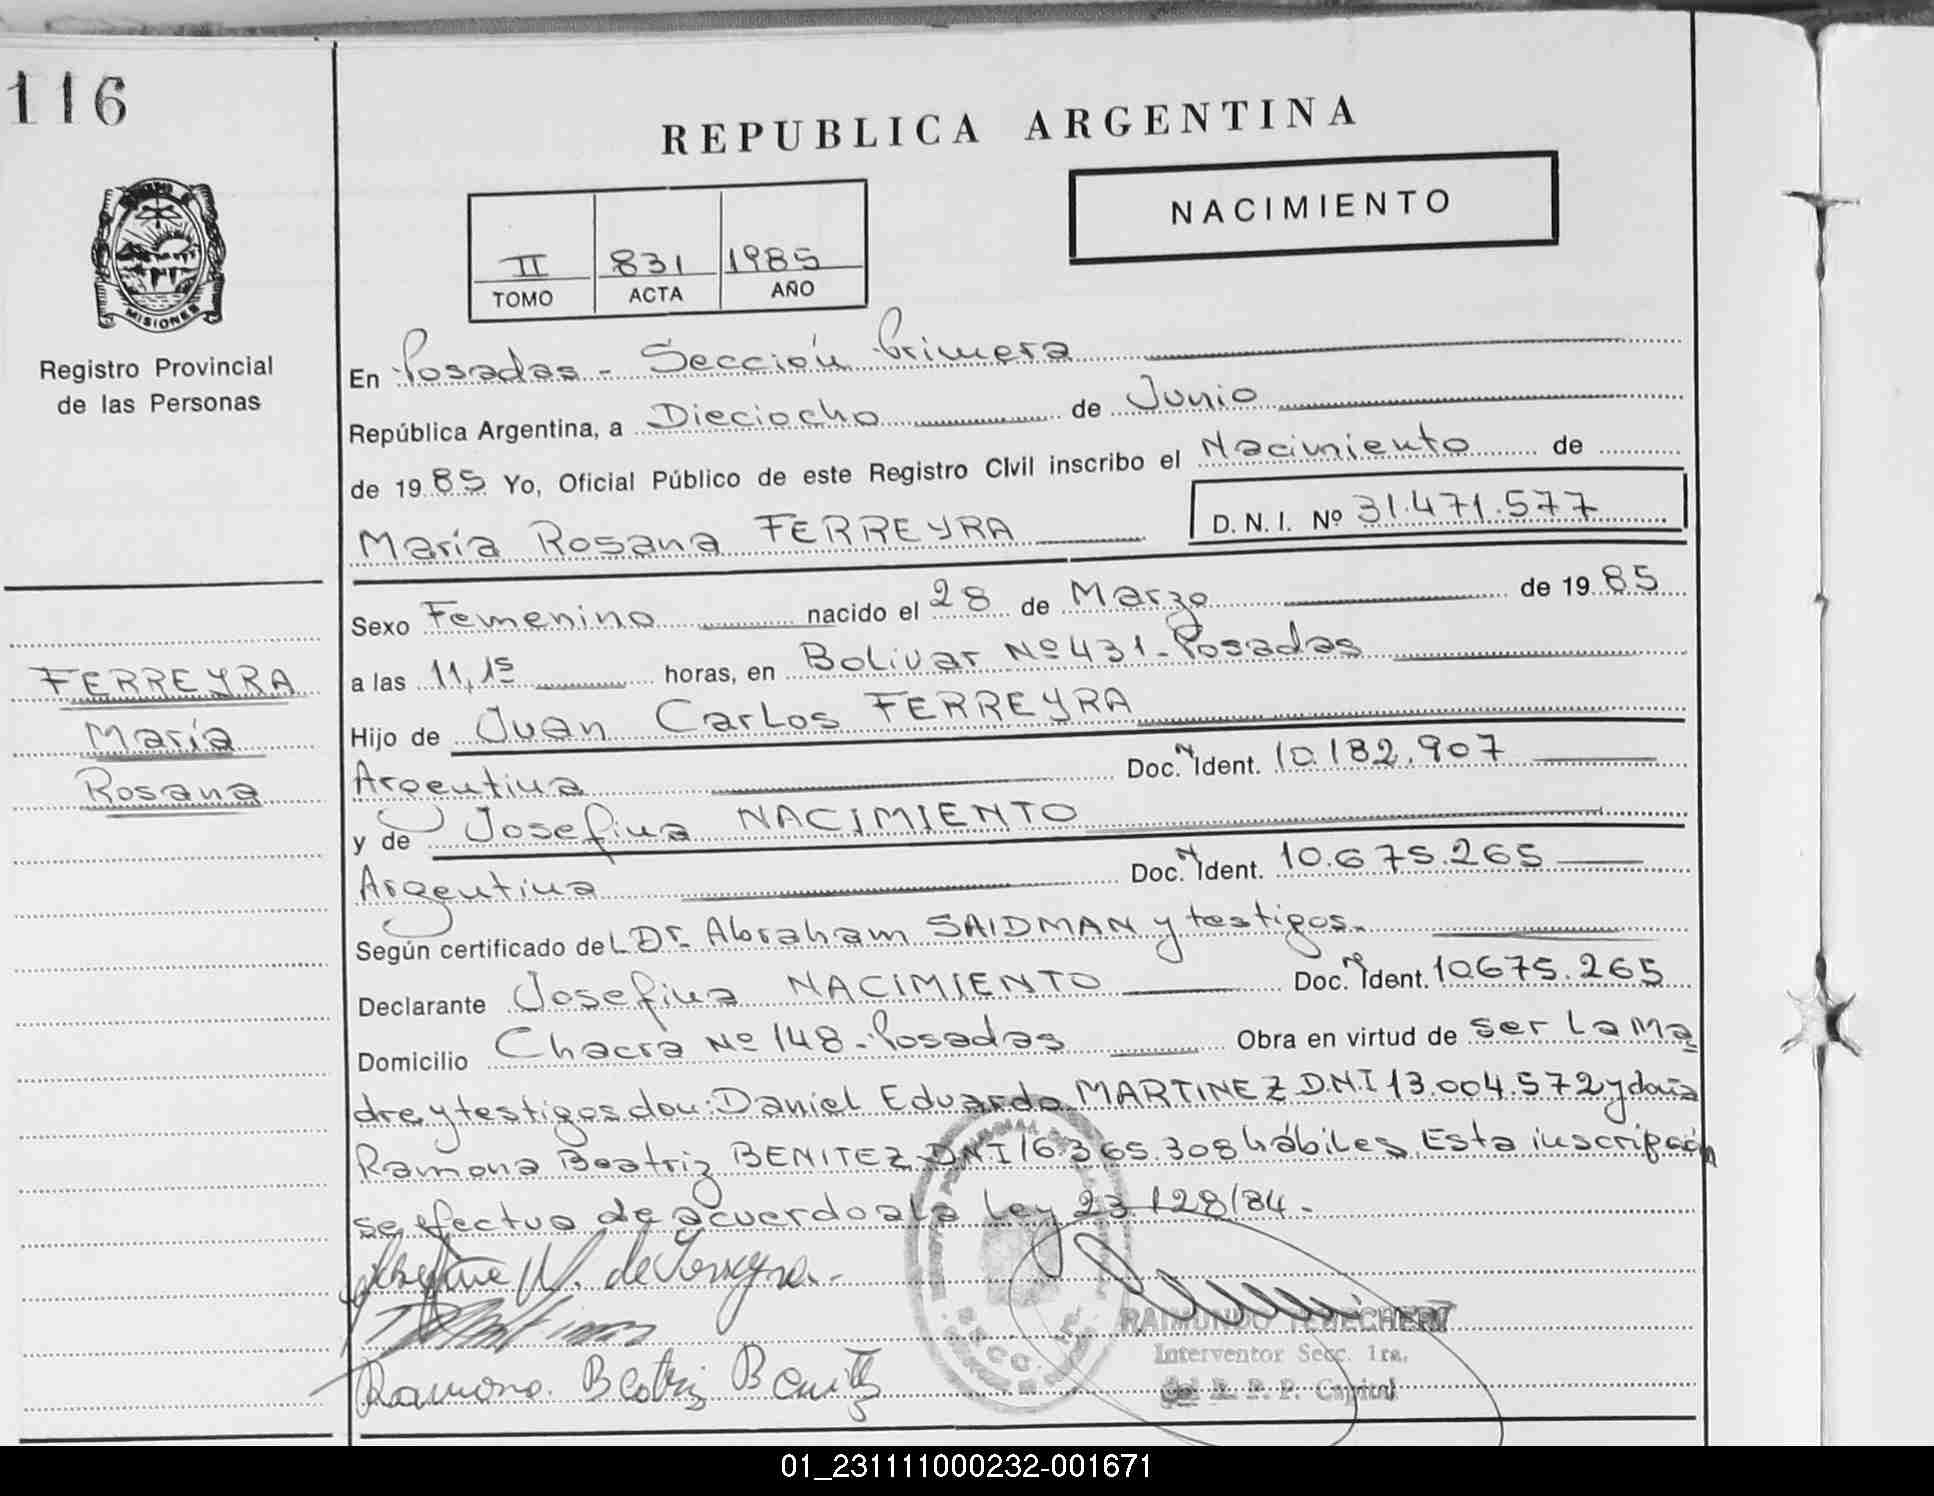 116
REPUBLICA ARGENTINA
NACIMIENTO
II 831 1985
TOMO ACTA AÑO
MISIONES
Registro Provincial
de las Personas
En Posadas - Sección Primera
República Argentina, a Dieciocho de Junio
de 1985 Yo, Oficial Público de este Registro Civil inscribo el Nacimiento de
María Rosana FERREYRA D. N. I. Nº 31.471.577
Sexo Femenino nacido el 28 de Marzo de 1985
a las 11,15 horas, en Bolivar Nº 431 - Posadas
Hijo de Juan Carlos FERREYRA
Argentina Doc. N Ident. 10.182.907
y de Josefina NACIMIENTO
Argentina Doc. N Ident. 10.675.265
Según certificado del Dr. Abraham SAIDMAN y testigos.
Declarante Josefina NACIMIENTO Doc. Nº Ident. 10675.265
Domicilio Chacra Nº 148 - Posadas Obra en virtud de ser la Ma
dre y testigos don: Daniel Eduardo MARTINEZ D.N.I 13.004.572 y doña
Ramona Beatriz BENITEZ DNI 16.365.308 hábiles. Esta inscripción
se efectua de acuerdo a la Ley 23.128/84.
FERREYRA
María
Rosana
N. de Ferreyra
Ramona Beatriz Benitez
RAIMUNDO
Interventor Secc. 1ra.
del R. P. P. Capital
01_231111000232-001671